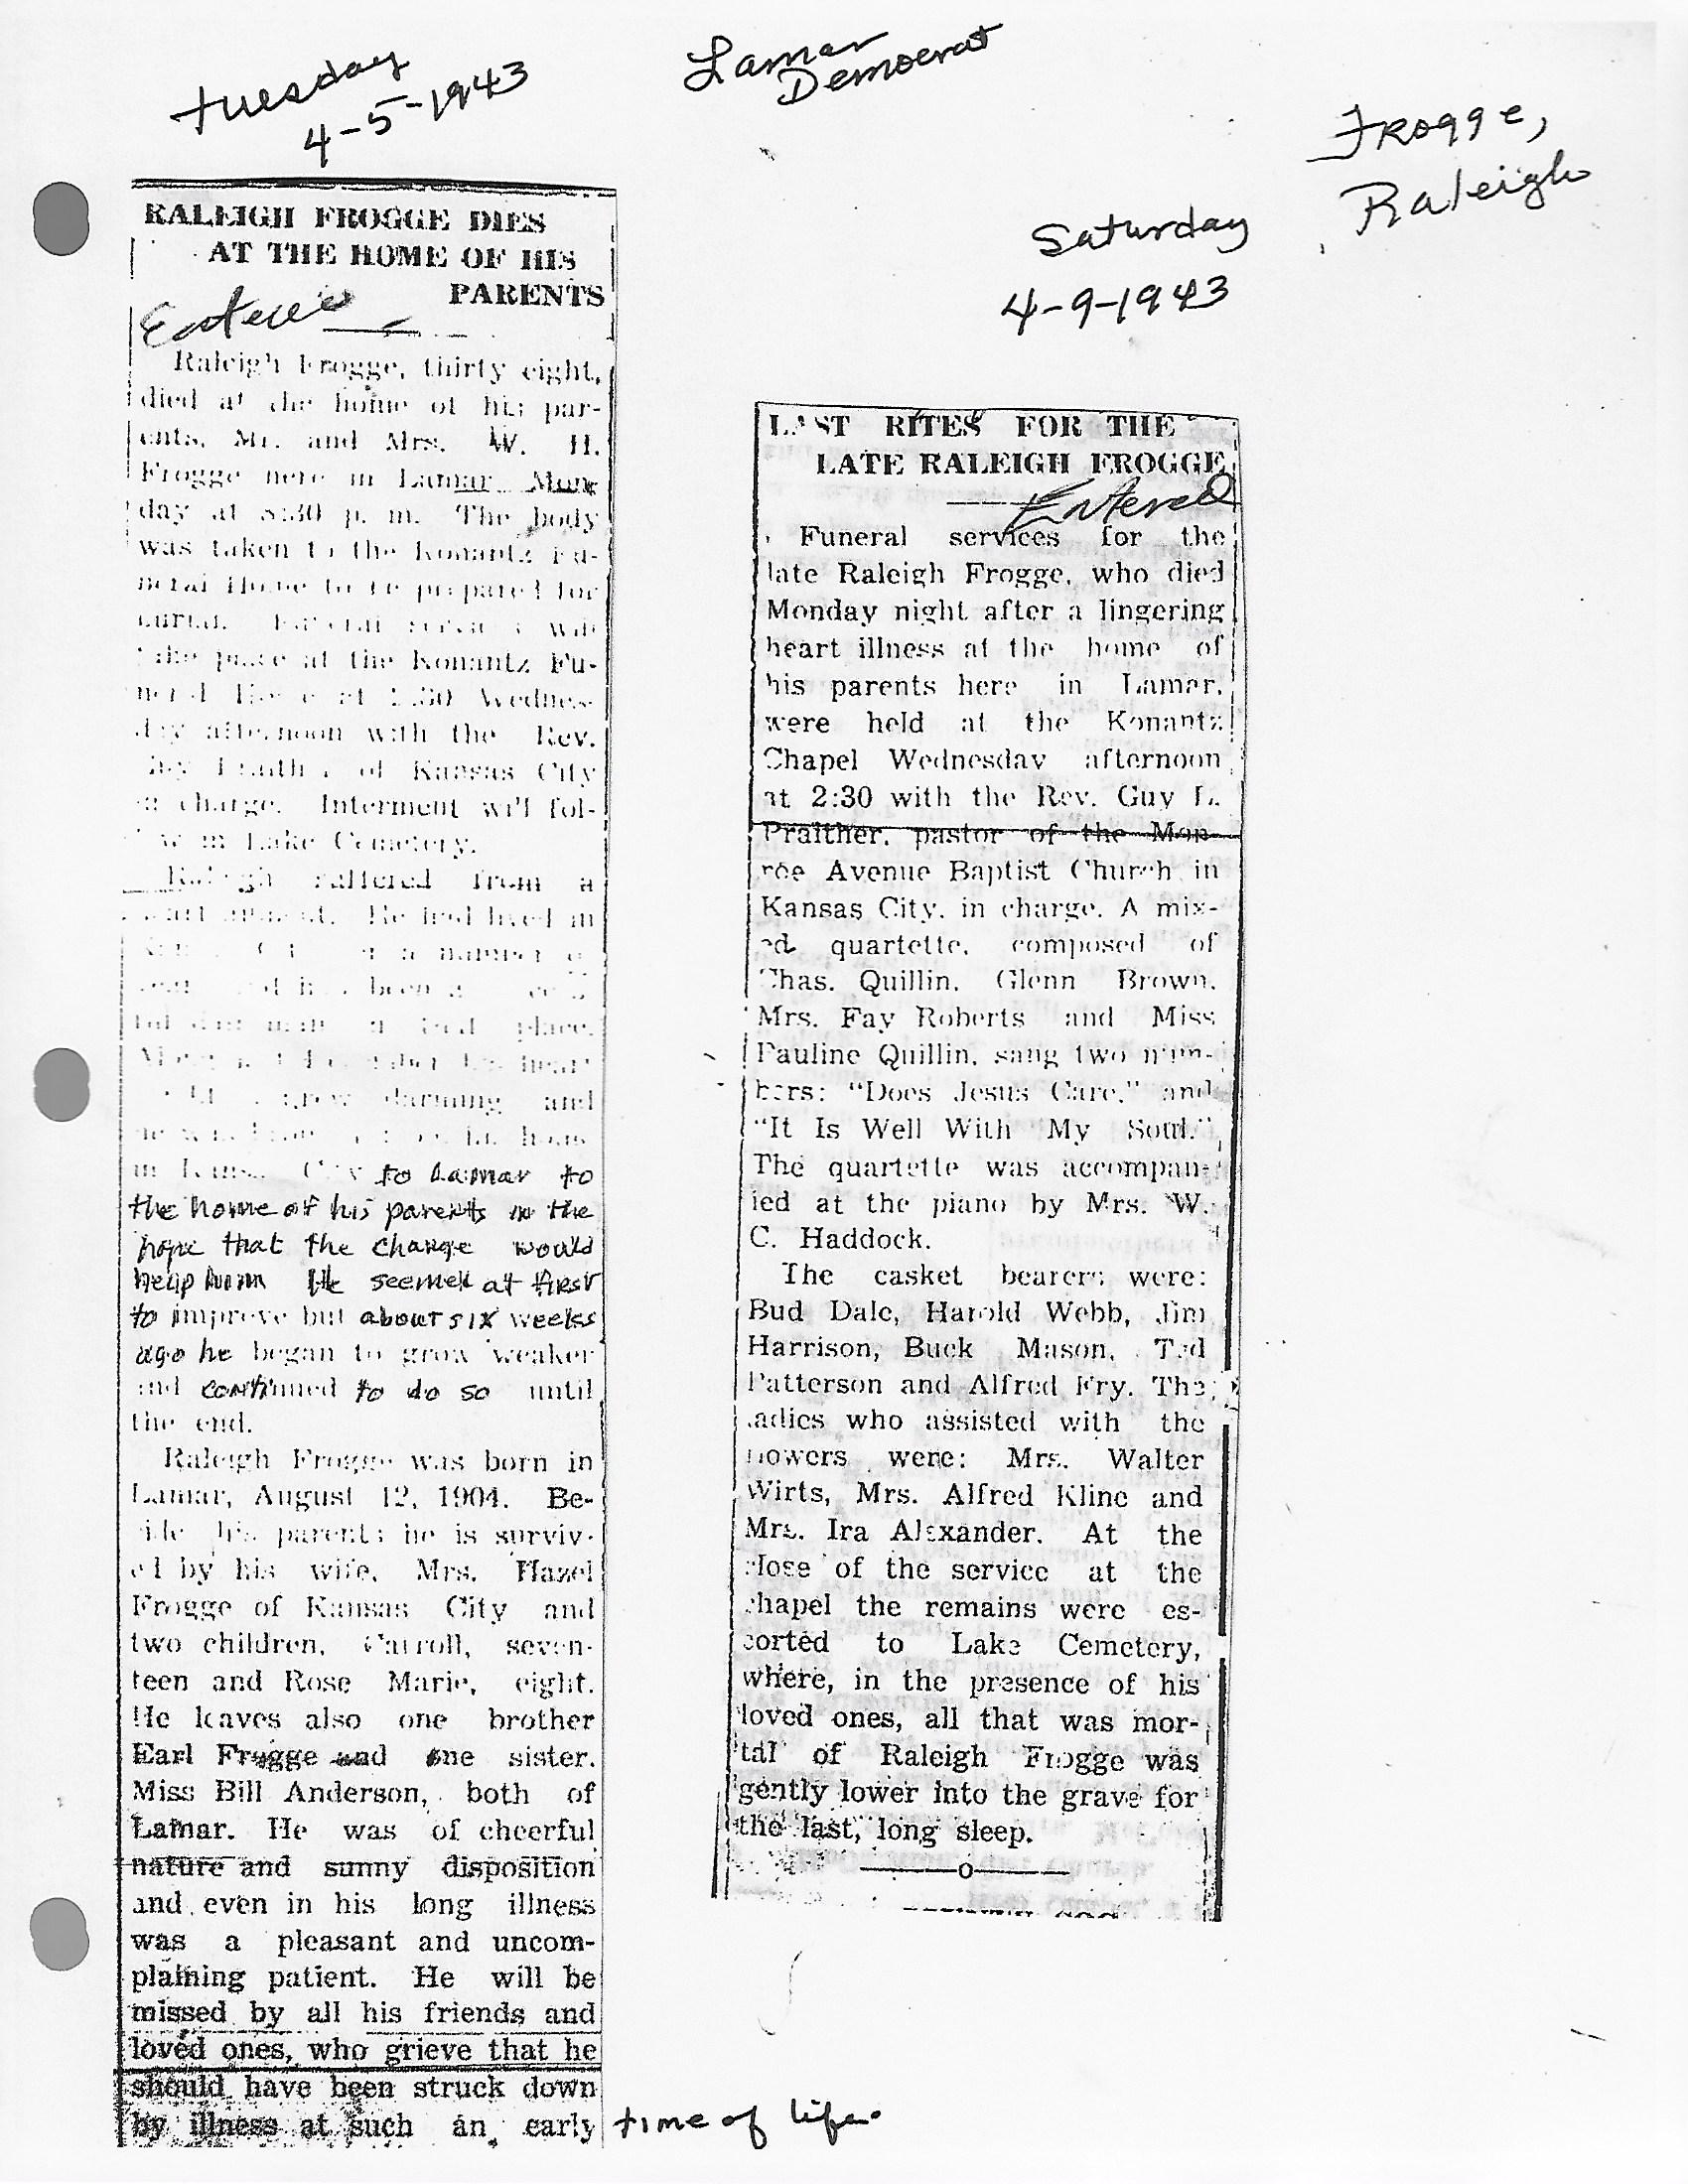 Tuesday
4-5-1943
Lamar
Democrat
Frogge,
Raleigh
Saturday
4-9-1943
RALEIGH FROGGE DIES
AT THE HOME OF HIS
PARENTS
Entered
Raleigh Frogge, thirty eight,
died at the home of his par-
ents, Mr. and Mrs. W. H.
Frogge here in Lamar Mon-
day at 8:30 p. m. The body
was taken to the Konantz Fu-
neral Home to be prepared for
burial. Funeral services will
take place at the Konantz Fu-
neral Home at 2:30 Wednes-
day afternoon with the Rev.
of Kansas City
in charge. Interment will fol-
low in Lake Cemetery.
Raleigh suffered from a
heart ailment. He had lived in
a number of
been
place.
heart
grew alarming and
in Kansas City to Lamar to
the home of his parents in the
hope that the change would
help him He seemed at first
to improve but about six weeks
ago he began to grow weaker
and continued to do so until
the end.
Raleigh Frogge was born in
Lamar, August 12, 1904. Be-
side his parents he is surviv-
ed by his wife, Mrs. Hazel
Frogge of Kansas City and
two children, Carroll, seven-
teen and Rose Marie, eight.
He leaves also one brother
Earl Frogge and one sister.
Miss Bill Anderson, both of
Lamar. He was of cheerful
nature and sunny disposition
and even in his long illness
was a pleasant and uncom-
plaining patient. He will be
missed by all his friends and
loved ones, who grieve that he
should have been struck down
by illness at such an early time of life.
LAST RITES FOR THE
LATE RALEIGH FROGGE
Entered
Funeral services for the
late Raleigh Frogge, who died
Monday night after a lingering
heart illness at the home of
his parents here in Lamar,
were held at the Konantz
Chapel Wednesday afternoon
at 2:30 with the Rev. Guy L.
Praither, pastor of the Mon-
roe Avenue Baptist Church in
Kansas City, in charge. A mix-
ed quartette, composed of
Chas. Quillin, Glenn Brown,
Mrs. Fay Roberts and Miss
Pauline Quillin, sang two num-
bers: "Does Jesus Care," and
"It Is Well With My Soul."
The quartette was accompan-
ied at the piano by Mrs. W.
C. Haddock.
The casket bearers were:
Bud Dale, Harold Webb, Jim
Harrison, Buck Mason, Ted
Patterson and Alfred Fry. The
ladies who assisted with the
flowers were: Mrs. Walter
Wirts, Mrs. Alfred Kline and
Mrs. Ira Alexander. At the
close of the service at the
chapel the remains were es-
corted to Lake Cemetery,
where, in the presence of his
loved ones, all that was mor-
tal of Raleigh Frogge was
gently lower into the grave for
the last, long sleep.